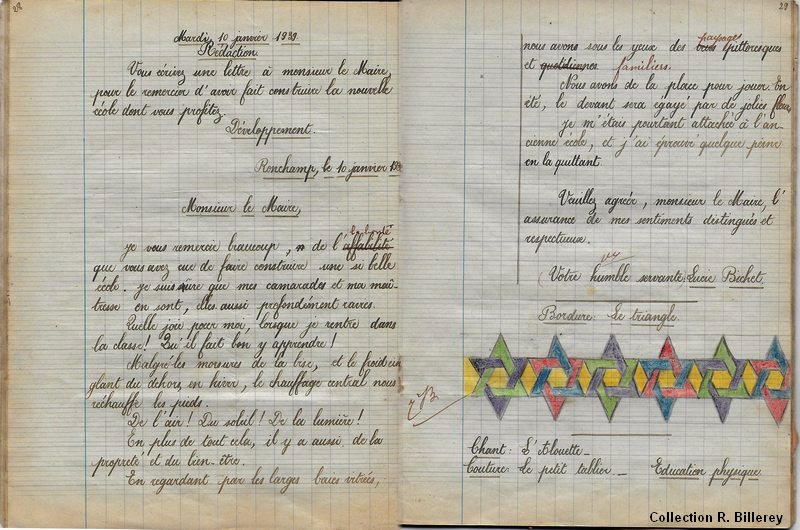 28
Mardi, 10 janvier 1939.
Rédaction.
Vous écrivez une lettre à monsieur le Maire,
pour le remercier d'avoir fait construire la nouvelle
école dont vous profitez.
Développement.
Ronchamp, le 10 janvier 193
Monsieur le Maire,
la bonté
je vous remercie beaucoup, de l'affabilité
que vous avez eue de faire construire une si belle
école. je suis sûre que mes camarades et ma maî-
tresse en sont, elles aussi profondément ravies.
Quelle joie pour moi, lorsque je rentre dans
la classe! Qu'il fait bon y apprendre!
Malgré les morsures de la bise, et le froid cin
glant du dehors, en hiver, le chauffage central nous
réchauffe les pieds.
De l'air! Du soleil! De la lumière!
En plus de tout cela, il y a aussi de la
propreté et du bien-être.
En regardant par les larges baies vitrées,
29
paysages
nous avons sous les yeux des pittoresques
et quotidiennes familiers.
Nous avons de la place pour jouer. En
été, le devant sera égayé par de jolies fleurs
je m'étais pourtant attachée à l'an-
cienne école, et j'ai éprouvé quelque peine
en la quittant.
Veuillez agréer, monsieur le Maire, l'
assurance de mes sentiments distingués et
respectueux.
Votre humble servante: Lucie Bichet.
Bordure: Le triangle.
Chant: L'Alouette_
Couture: Le petit tablier._ Education physique.
Collection R. Billerey